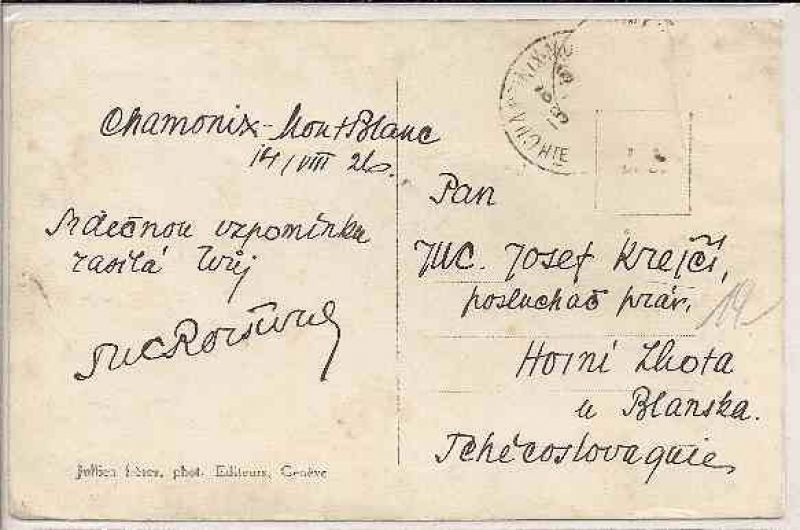 Chamonix-Mont Blanc
14/VIII 26.
Srdečnou vzpomínku
zasílá Tvůj
Pan
JUC. Josef Krejčí,
posluchač práv.
Horní Lhota
u Blanska.
Tchécoslovaquie
19
Jullien frères, phot. Editeurs, Genève